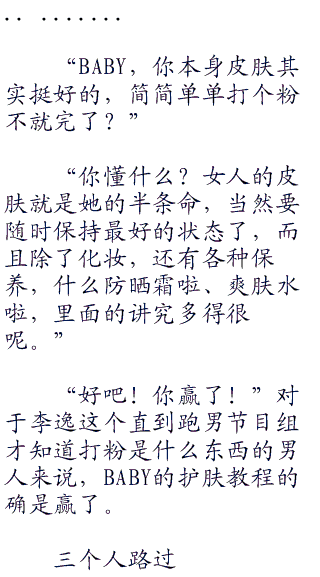 .. .......
“BABY，你本身皮肤其
实挺好的，简简单单打个粉
不就完了？”
“你懂什么？女人的皮
肤就是她的半条命，当然要
随时保持最好的状态了，而
且除了化妆，还有各种保
养，什么防晒霜啦、爽肤水
啦，里面的讲究多得很
呢。”
“好吧！你赢了！”对
于李逸这个直到跑男节目组
才知道打粉是什么东西的男
人来说，BABY的护肤教程的
确是赢了。
三个人路过